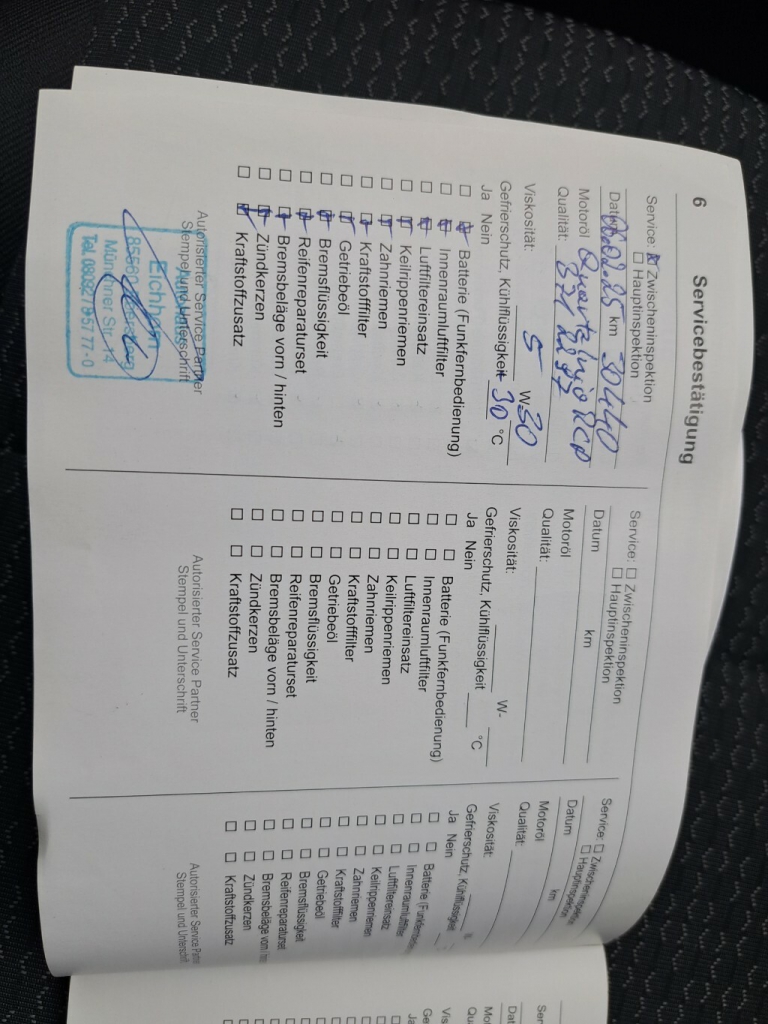 6 Servicebestätigung
Service: ☒ Zwischeninspektion
☐ Hauptinspektion
Datum 06.02.25 km 30440
Motoröl Quartz Ineo RCP
Qualität:
Viskosität: 5 W-30
Gefrierschutz, Kühlflüssigkeit -30 °C
Ja Nein
☐ ☒ Batterie (Funkfernbedienung)
☐ ☒ Innenraumluftfilter
☐ ☒ Luftfiltereinsatz
☐ ☒ Keilrippenriemen
☐ ☒ Zahnriemen
☐ ☒ Kraftstofffilter
☐ ☒ Getriebeöl
☐ ☒ Bremsflüssigkeit
☐ ☒ Reifenreparaturset
☐ ☒ Bremsbeläge vorn / hinten
☐ ☒ Zündkerzen
☐ ☒ Kraftstoffzusatz
Autorisierter Service Partner
Stempel und Unterschrift
Eichhorn
Münchner Str. 14
Service: ☐ Zwischeninspektion
☐ Hauptinspektion
Datum km
Motoröl
Qualität:
Viskosität: W-
Gefrierschutz, Kühlflüssigkeit °C
Ja Nein
☐ ☐ Batterie (Funkfernbedienung)
☐ ☐ Innenraumluftfilter
☐ ☐ Luftfiltereinsatz
☐ ☐ Keilrippenriemen
☐ ☐ Zahnriemen
☐ ☐ Kraftstofffilter
☐ ☐ Getriebeöl
☐ ☐ Bremsflüssigkeit
☐ ☐ Reifenreparaturset
☐ ☐ Bremsbeläge vorn / hinten
☐ ☐ Zündkerzen
☐ ☐ Kraftstoffzusatz
Autorisierter Service Partner
Stempel und Unterschrift
Service: ☐ Zwischeninspektion
☐ Hauptinspektion
Datum km
Motoröl
Qualität:
Viskosität:
Gefrierschutz, Kühlflüssigkeit
Ja Nein
☐ ☐ Batterie
☐ ☐ Innenraumluftfilter
☐ ☐ Luftfiltereinsatz
☐ ☐ Keilrippenriemen
☐ ☐ Zahnriemen
☐ ☐ Kraftstofffilter
☐ ☐ Getriebeöl
☐ ☐ Bremsflüssigkeit
☐ ☐ Reifenreparaturset
☐ ☐ Bremsbeläge vorn /
☐ ☐ Zündkerzen
☐ ☐ Kraftstoffzusatz
Autorisierter Service
Stempel und Unterschrift